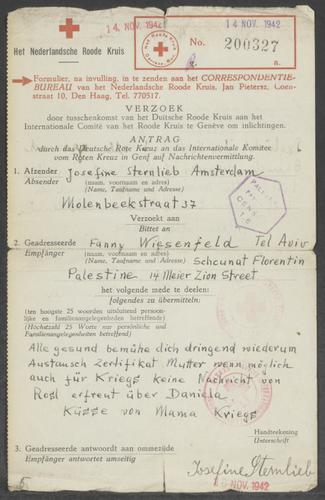 14. NOV. 1942
14 NOV. 1942
Het Nederlandsche Roode Kruis
No. 200327
Formulier, na invulling, in te zenden aan het CORRESPONDENTIE-
BUREAU van het Nederlandsche Roode Kruis, Jan Pietersz. Coen-
straat 10, Den Haag, Tel. 770517.
VERZOEK
door tusschenkomst van het Duitsche Roode Kruis aan het
Internationale Comité van het Roode Kruis te Genève om inlichtingen.
ANTRAG
durch das Deutsche Rote Kreuz an das Internationale Komitee
vom Roten Kreuz in Genf auf Nachrichtenvermittlung.
1. Afzender Josefine Sternlieb Amsterdam
Absender (naam, voornaam en adres)
(Name, Taufname und Adresse)
Molenbeekstraat 37
Verzoekt aan
Bittet an
2. Geadresseerde Fanny Wiesenfeld Tel Aviv
Empfänger (naam, voornaam en adres) Schcunat Florentin
(Name, Taufname und Adresse)
Palestine 14 Meier Zion Street
het volgende mede te deelen:
folgendes zu übermitteln:
(ten hoogste 25 woorden uitsluitend persoon-
lijke en familieaangelegenheden betreffend)
(Höchstzahl 25 Worte nur persönliche und
Familienangelegenheiten betreffend)
Alle gesund bemühe dich dringend wiederum
Austausch Zertifikat Mutter wenn möglich
auch für Kriegs keine Nachricht von
Rosl erfreut über Daniela.
Küsse von Mama Kriegs
Handteekening
Unterschrift
3. Geadresseerde antwoordt aan ommezijde
Empfänger antwortet umseitig
Josefine Sternlieb
NOV. 1942